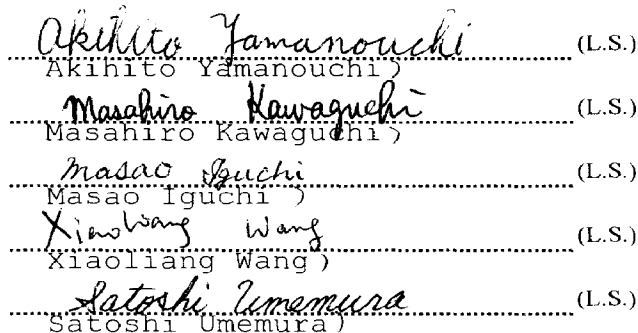 Akihito Yamanouchi (L.S.)
Akihito Yamanouchi)
Masahiro Kawaguchi (L.S.)
Masahiro Kawaguchi)
Masao Iguchi (L.S.)
Masao Iguchi )
Xiaoliang Wang (L.S.)
Xiaoliang Wang )
Satoshi Umemura (L.S.)
Satoshi Umemura)